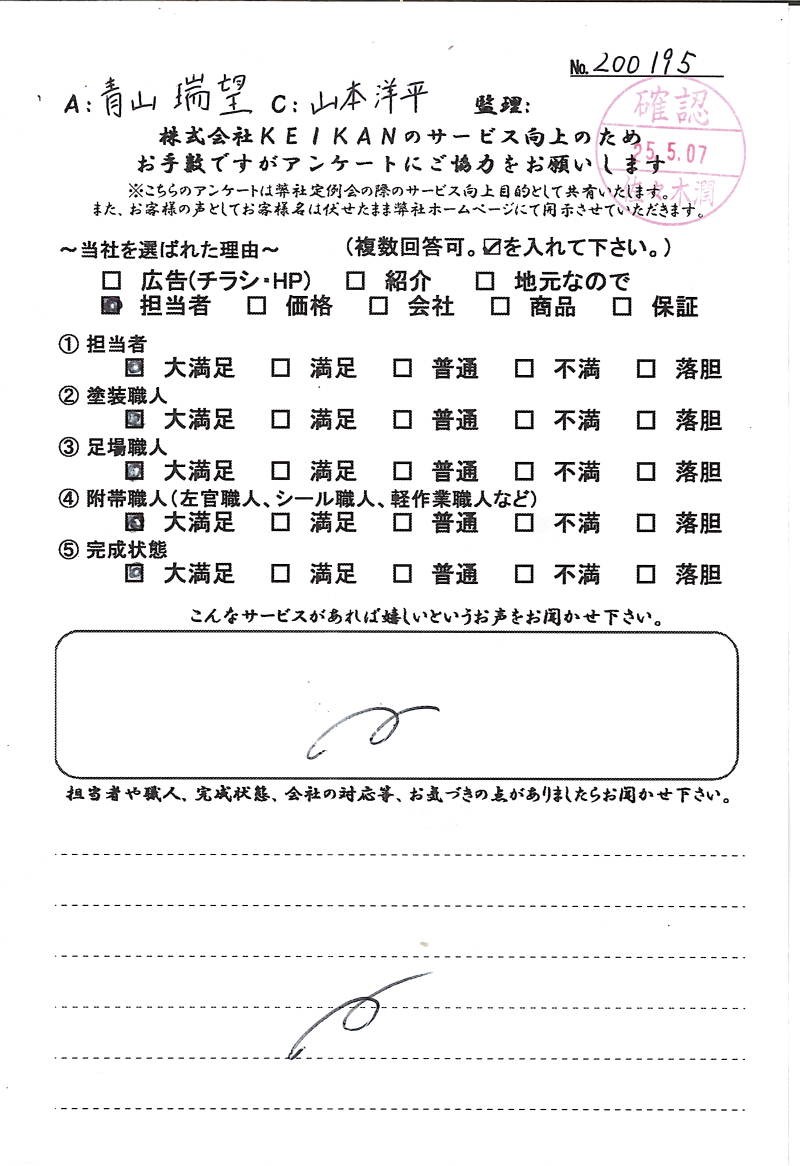 No. 200195
A:青山 瑞望 C:山本洋平 監理:
確認
25.5.07
佐々木潤
株式会社KEIKANのサービス向上のため
お手数ですがアンケートにご協力をお願いします
※こちらのアンケートは弊社定例会の際のサービス向上目的として共有いたします。
また、お客様の声としてお客様名は伏せたまま弊社ホームページにて開示させていただきます。
~当社を選ばれた理由~ (複数回答可。☑を入れて下さい。)
□ 広告(チラシ・HP) □ 紹介 □ 地元なので
■ 担当者 □ 価格 □ 会社 □ 商品 □ 保証
① 担当者
■ 大満足 □ 満足 □ 普通 □ 不満 □ 落胆
② 塗装職人
■ 大満足 □ 満足 □ 普通 □ 不満 □ 落胆
③ 足場職人
■ 大満足 □ 満足 □ 普通 □ 不満 □ 落胆
④ 附帯職人(左官職人、シール職人、軽作業職人など)
■ 大満足 □ 満足 □ 普通 □ 不満 □ 落胆
⑤ 完成状態
■ 大満足 □ 満足 □ 普通 □ 不満 □ 落胆
こんなサービスがあれば嬉しいというお声をお聞かせ下さい。
担当者や職人、完成状態、会社の対応等、お気づきの点がありましたらお聞かせ下さい。